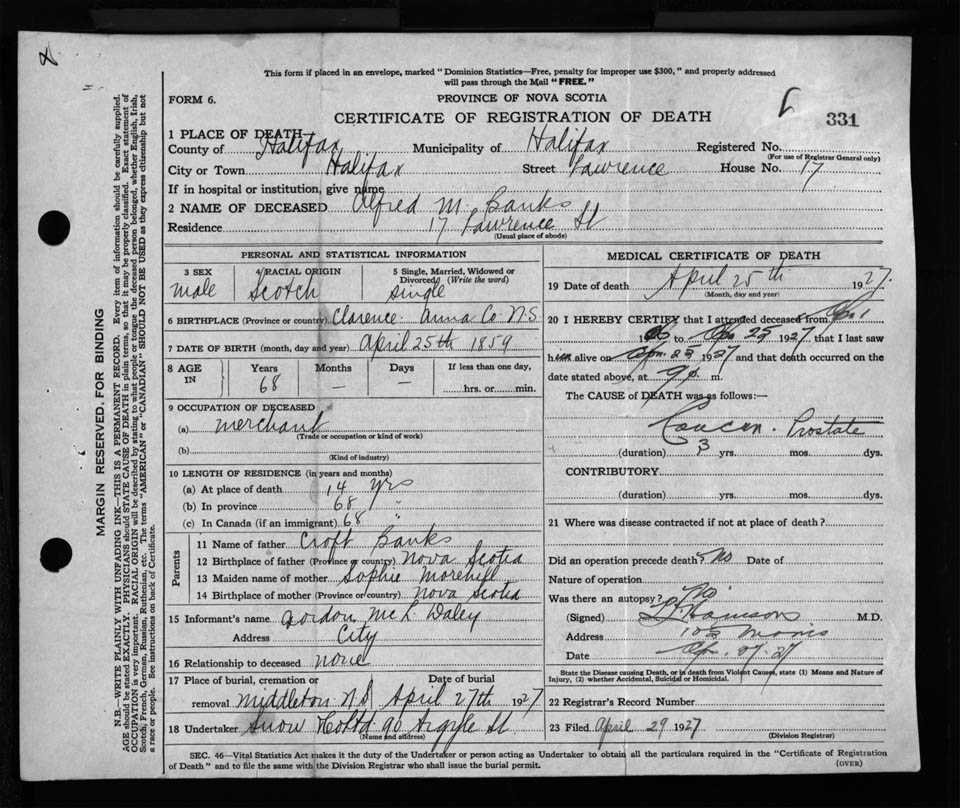 This form if placed in an envelope, marked "Dominion Statistics—Free, penalty for improper use $300," and properly addressed
will pass through the Mail "FREE."
FORM 6.
PROVINCE OF NOVA SCOTIA
CERTIFICATE OF REGISTRATION OF DEATH
331
1 PLACE OF DEATH—
County of Halifax Municipality of Halifax Registered No.
(For use of Registrar General only)
City or Town Halifax Street Lawrence House No. 17
If in hospital or institution, give name
2 NAME OF DECEASED Alfred M. Banks
Residence 17 Lawrence St
(Usual place of abode)
PERSONAL AND STATISTICAL INFORMATION
3 SEX 4 RACIAL ORIGIN 5 Single, Married, Widowed or
Divorced (Write the word)
male Scotch single
6 BIRTHPLACE (Province or country) Clarence Anna Co. N.S.
7 DATE OF BIRTH (month, day and year) April 25th 1859
8 AGE IN Years Months Days If less than one day,
68 — — hrs. or min.
9 OCCUPATION OF DECEASED
(a) merchant
(Trade or occupation or kind of work)
(b)
(Kind of industry)
10 LENGTH OF RESIDENCE (in years and months)
(a) At place of death 14 yrs
(b) In province 68 "
(c) In Canada (if an immigrant) 68 "
Parents
11 Name of father Croft Banks
12 Birthplace of father (Province or country) Nova Scotia
13 Maiden name of mother Sophie
14 Birthplace of mother (Province or country) Nova Scotia
15 Informant's name Gordon McL Daley
Address City
16 Relationship to deceased none
17 Place of burial, cremation or Date of burial
removal Middleton N.S April 27th 1927
18 Undertaker Snow Co Ltd. 90 Argyle St
(Name and address)
MEDICAL CERTIFICATE OF DEATH
19 Date of death April 25th 1927.
(Month, day and year)
20 I HEREBY CERTIFY that I attended deceased from Apr 1
19 to Apr 25 1927 that I last saw
him alive on Apr. 25 1927 and that death occurred on the
date stated above, at 9 p. m.
The CAUSE of DEATH was as follows:—
Cancer. Prostate
(duration) 3 yrs. mos. dys.
CONTRIBUTORY
(duration) yrs. mos. dys.
21 Where was disease contracted if not at place of death?
Did an operation precede death? No Date of
Nature of operation
Was there an autopsy? No
(Signed) M.D.
Address Morris
Date Apr. 27. 27
State the Disease causing Death, or in death from Violent Causes, state (1) Means and Nature of
Injury, (2) whether Accidental, Suicidal or Homicidal.
22 Registrar's Record Number
23 Filed April 29 1927
(Division Registrar)
SEC. 46—Vital Statistics Act makes it the duty of the Undertaker or person acting as Undertaker to obtain all the particulars required in the "Certificate of Registration
of Death" and to file the same with the Division Registrar who shall issue the burial permit.
(OVER)
MARGIN RESERVED FOR BINDING
N.B.—WRITE PLAINLY WITH UNFADING INK—THIS IS A PERMANENT RECORD. Every item of information should be carefully supplied.
AGE should be stated EXACTLY. PHYSICIANS should STATE CAUSE OF DEATH in plain terms, so that it may be properly classified. Exact statement of
OCCUPATION is very important. RACIAL ORIGIN will be described by stating to what people or tongue the deceased person belonged, whether English, Irish,
Scotch, French, German, Russian, Ruthenian, etc. The terms "AMERICAN" or "CANADIAN" SHOULD NOT BE USED as they express citizenship but not
a race or people. See instructions on back of Certificate.